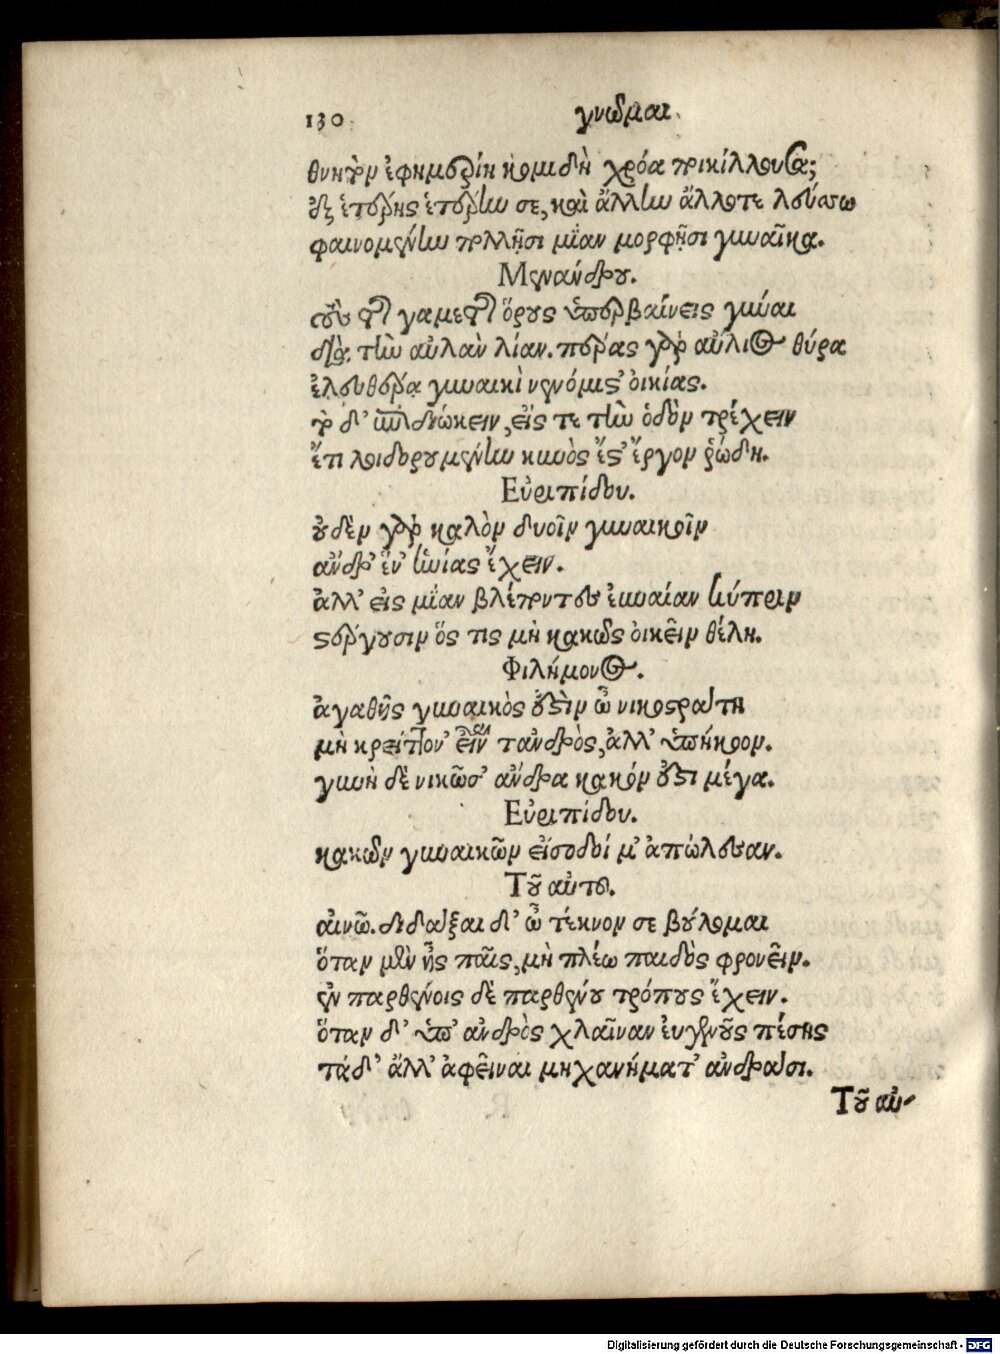 130 γνῶμαι.
θνητὴν ἐφημερίη κομιδῆ χρόα ποικίλλουσα;
ἐξ ἑτέρης ἑτέρην σε, καὶ ἄλλην ἄλλοτε λεύσσω
φαινομένην πολλῇσι μίαν μορφῇσι γυναῖκα.
Μενάνδρου.
τοὺς τῆς γαμετῆς ὅρους ὑπερβαίνεις γύναι
διὰ τὴν αὐλὰν λίαν. πέρας γὰρ αὔλιος θύρα
ἐλευθέρᾳ γυναικὶ νενόμιστ' οἰκίας.
τὸ δ' ἐπιδιώκειν, εἴς τε τὴν ὁδὸν τρέχειν
ἔτι λοιδορουμένην κυνὸς ἔστ' ἔργον ῥόδη.
Εὐριπίδου.
οὐδὲν γὰρ καλὸν δυοῖν γυναικοῖν
ἄνδρ' ἕν' ἡνίας ἔχειν.
ἀλλ' εἰς μίαν βλέποντες εὐναίαν κύπριν
στέργουσιν ὅς τις μὴ κακῶς οἰκεῖν θέλῃ.
Φιλήμονος.
ἀγαθῆς γυναικὸς ἐστὶν ὦ νικοστράτη
μὴ κρείττον' εἶναι τἀνδρὸς, ἀλλ' ὑπήκοον.
γυνὴ δὲ νικῶσ' ἄνδρα κακόν ἐστι μέγα.
Εὐριπίδου.
κακῶν γυναικῶν εἴσοδοί μ' ἀπώλεσαν.
Τοῦ αὐτοῦ.
αἰνῶ. διδάξαι δ' ὦ τέκνον σε βούλομαι
ὅταν μὲν ᾖς παῖς, μὴ πλέω παιδὸς φρονεῖν.
ἐν παρθένοις δὲ παρθένου τρόπους ἔχειν.
ὅταν δ' ὑπ' ἀνδρὸς χλαῖναν εὐγενοῦς πέσῃς
τὰ δ' ἄλλ' ἀφεῖναι μηχανήματ' ἀνδράσι.
Τοῦ αὐ-
Digitalisierung gefördert durch die Deutsche Forschungsgemeinschaft - DFG